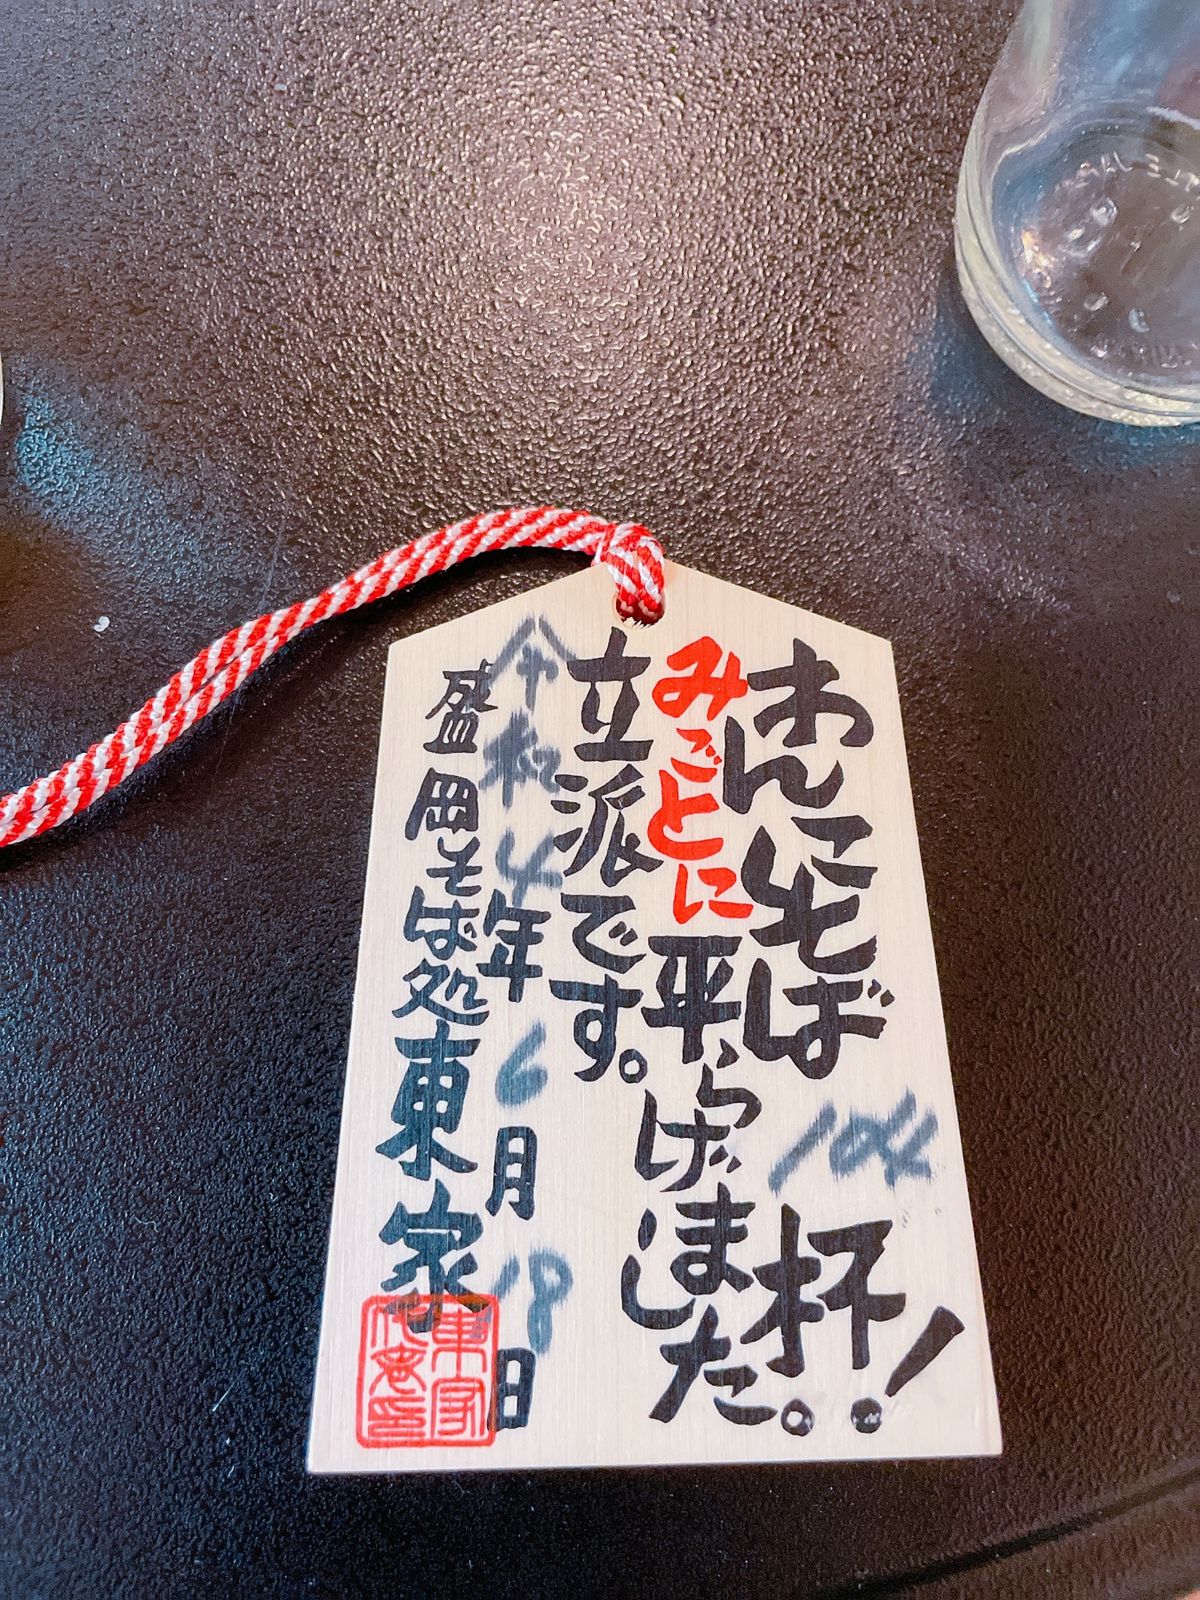 わんこそば 104 杯!
みごとに平らげました。
立派です。
令和4年6月18日
盛岡そば処東家
東家